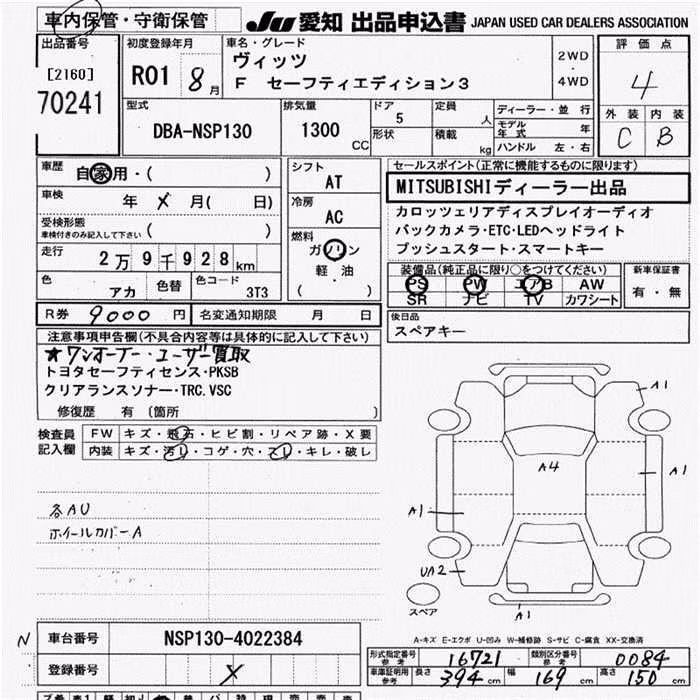 車内保管・守衛保管
JU 愛知 出品申込書 JAPAN USED CAR DEALERS ASSOCIATION
出品番号
[2160]
70241
初度登録年月
R01 8月
車名・グレード
ヴィッツ
F セーフティエディション3
2WD
・
4WD
評価点
4
外装 内装
C B
型式
DBA-NSP130
排気量
1300 CC
ドア
5
形状
定員
人
積載
kg
ディーラー・並行
モデル年式 年
ハンドル 左・右
車歴
自家用・( )
車検
年 X 月( 日)
受検形態
車検付きのみ記入して下さい ( )
走行
2万9千928km
色
アカ
色替
色コード
3T3
シフト
AT
冷房
AC
燃料
ガソリン
軽・油
( )
セールスポイント(正常に機能するものに限ります)
MITSUBISHIディーラー出品
カロッツェリアディスプレイオーディオ
バックカメラ・ETC・LEDヘッドライト
プッシュスタート・スマートキー
装備品(純正品に限り○をつけてください)
PS PW エアB AW
SR ナビ TV カワシート
新車保証書
有・無
R券 9000円
名変通知期限 月 日
後日品
スペアキー
注意事項申告欄(不具合内容等は具体的に記入して下さい)
★ワンオーナー・ユーザー買取
トヨタセーフティセンス・PKSB
クリアランスソナー・TRC.VSC
修復歴 有 〔箇所 〕
検査員
記入欄
FW キズ・飛石・ヒビ割・リペア跡・X要
内装 キズ・汚レ・コゲ・穴・スレ・キレ・破レ
各AU
ホイールカバーA
A1
A4
A1
A1
UA2
A1
スペア
A-キズ E-エクボ U-凹み W-補修跡 S-サビ C-腐食 XX-交換済
N
車台番号
NSP130-4022384
登録番号
X
形式指定番号
参考
16721
類別区分番号
参考
0084
車庫証明用
参考
長さ 394 cm 幅 169 cm 高さ 150 cm